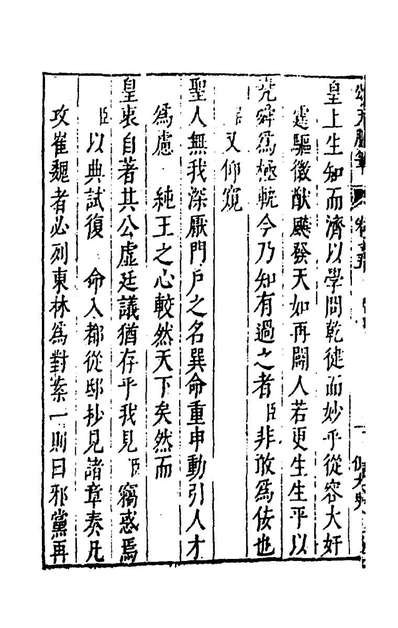 皇上生知而濟以學問乾健而妙乎從容大奸
霆驅徵猷飈發天如再闢人若更生生平以
堯舜為極軌今乃知有過之者臣非敢為佞也
臣又仰窺
聖人無我深厭門戶之名巽命重申動引人才
為慮 純王之心較然天下矣然而
皇衷自著其公虛廷議猶存乎我見臣竊惑焉
臣以典試復 命入都從邸抄見諸章奏凡
攻崔魏者必列東林為對案一則曰邪黨再